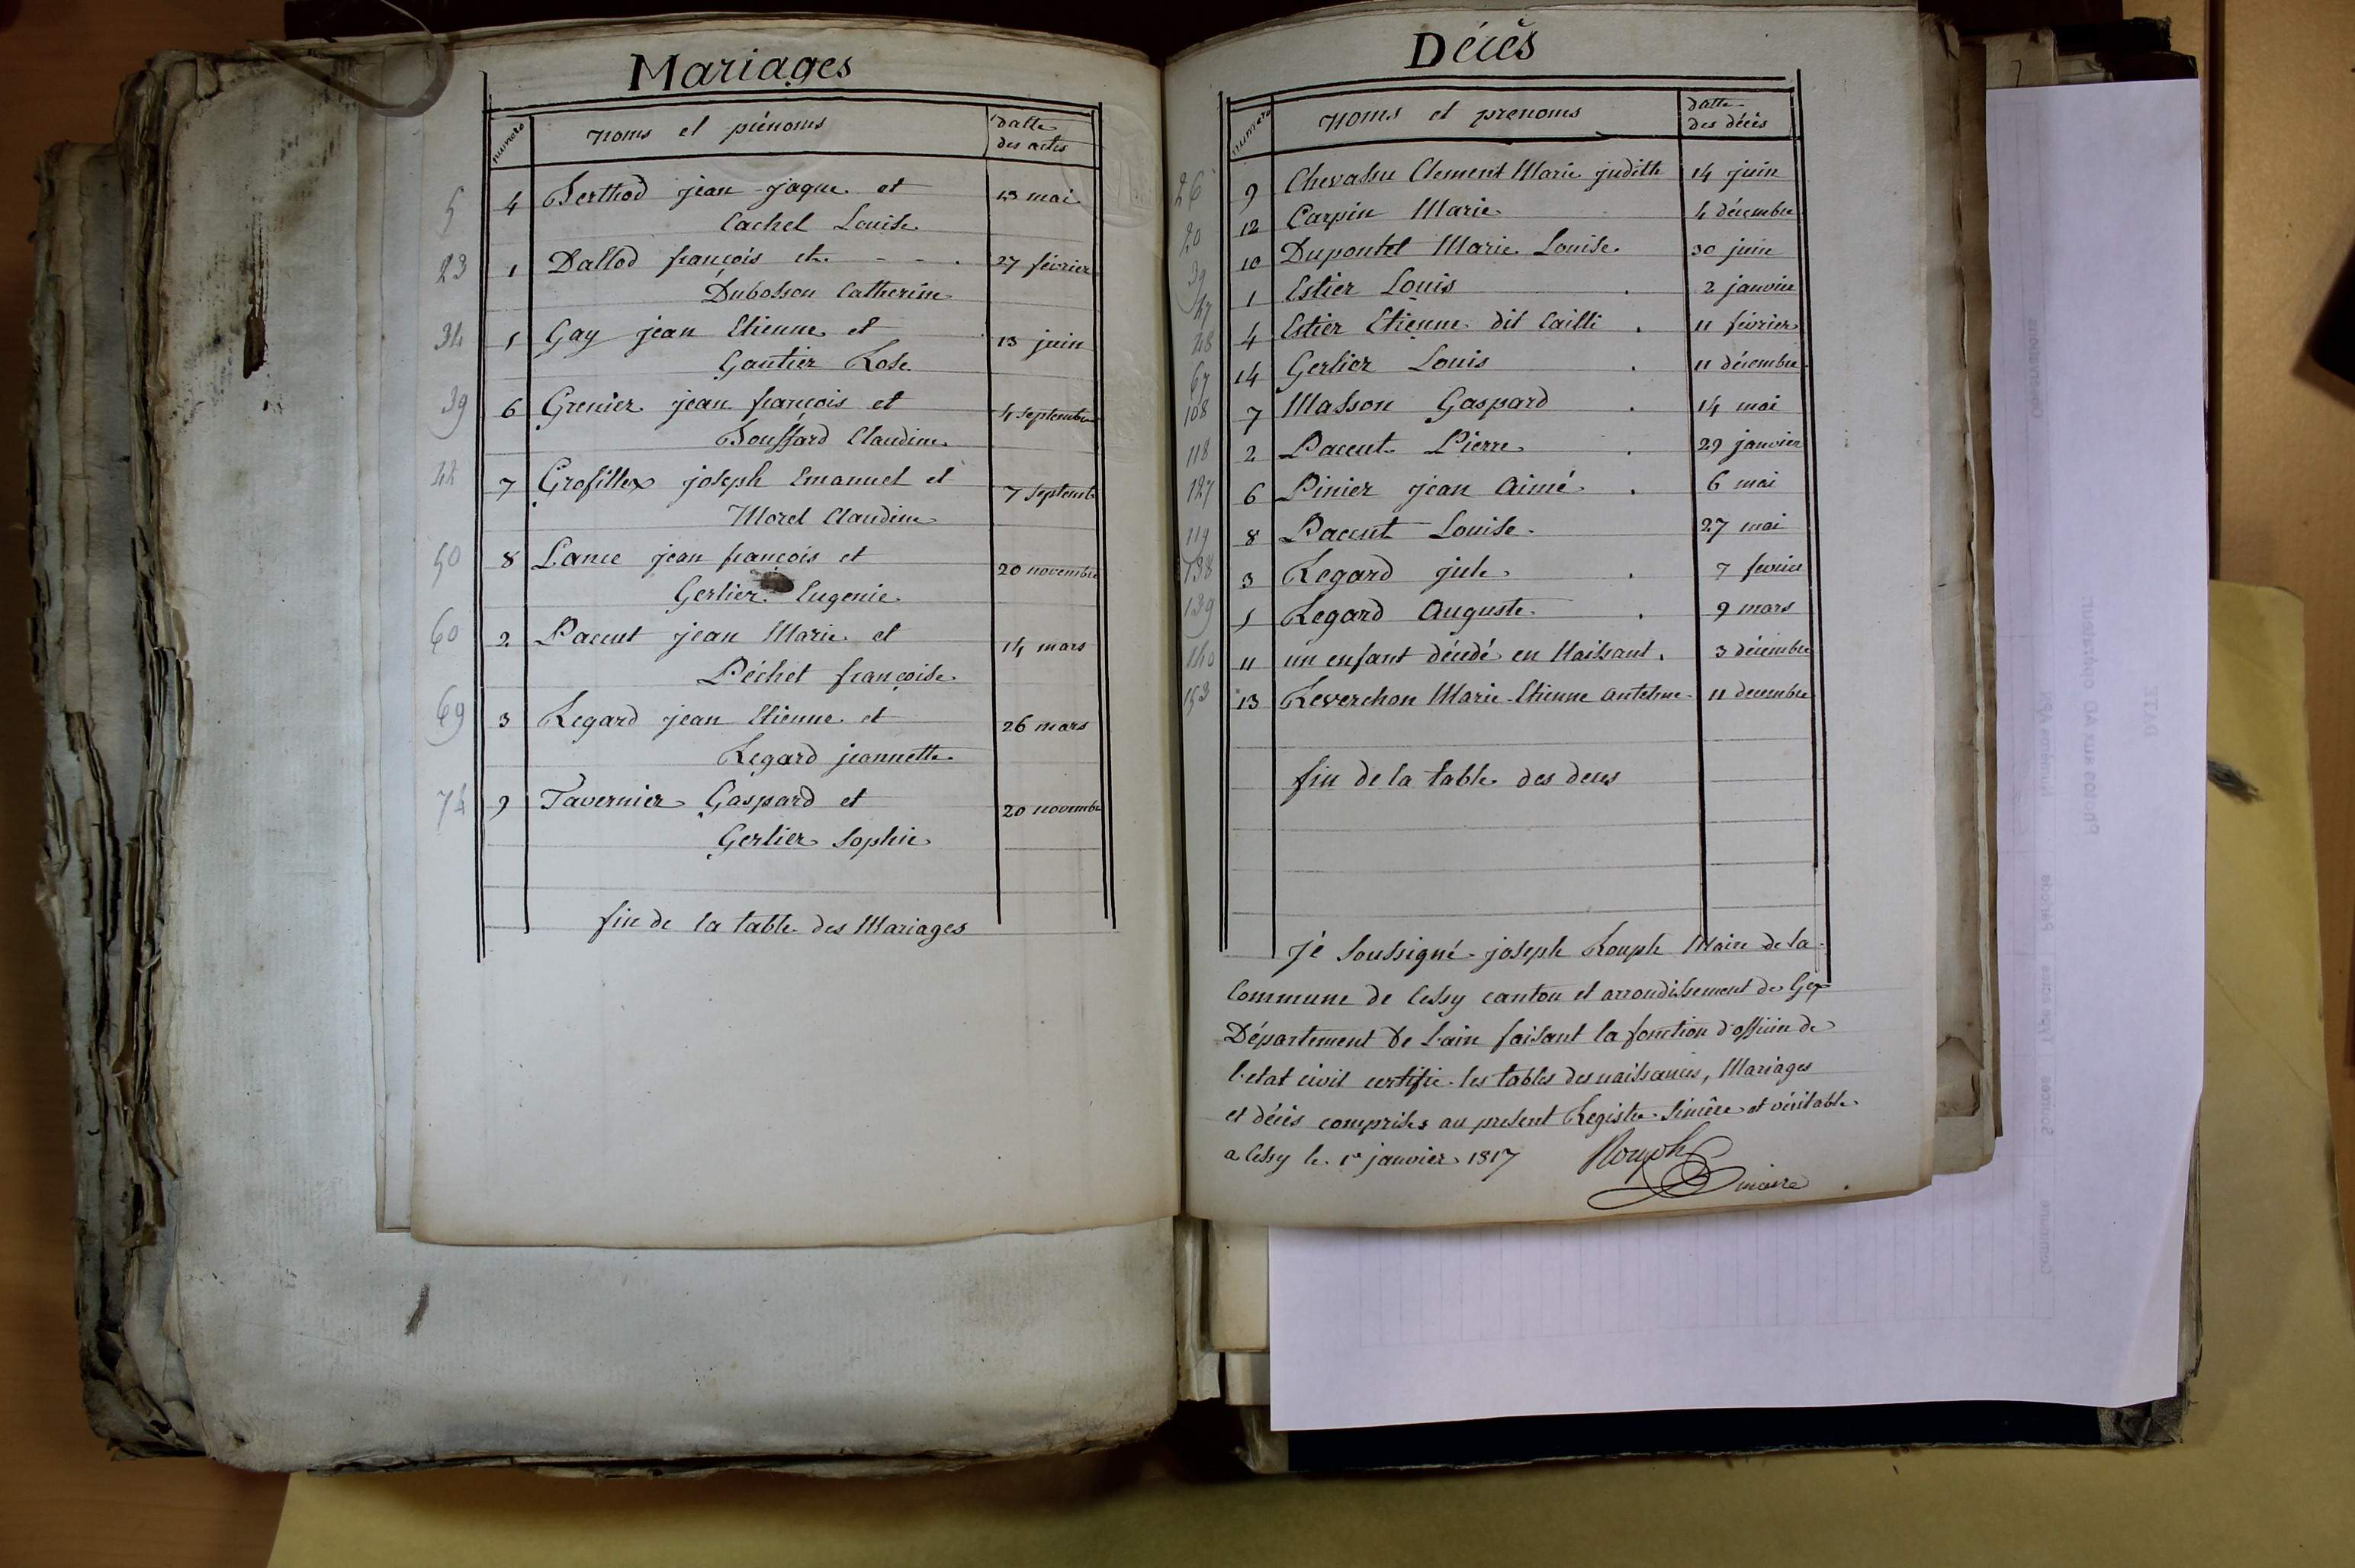 Mariages
numero
noms et prénoms
datte
des actes
5 4 Berthod jean jaque et 13 mai
Cachet Louise
23 1 Dallod françois et 27 février
Dubosson Catherine
34 5 Gay jean Etienne et 13 juin
Gautier Rose
39 6 Grenier jean françois et 4 septembre
Bouffard Claudine
44 7 Grosfillex joseph Emanuel et 7 septemb
Morel Claudine
50 8 Lance jean françois et 20 novembre
Gerlier Eugenie
60 2 Paccut jean Marie et 14 mars
Péchet françoise
69 3 Regard jean Etienne et 26 mars
Regard jeannette
74 9 Tavernier Gaspard et 20 novembre
Gerlier Sophie
fin de la table des Mariages
Décès
numero
noms et prenoms
datte
des décès
26 9 Chevassu Clement Marie judith 14 juin
20 12 Carpin Marie 4 décembre
39 10 Dupontet Marie Louise 30 juin
47 1 Estier Louis 2 janvier
48 4 Estier Etienne dit Cailli 11 février
67 14 Gerlier Louis 11 décembre
108 7 Masson Gaspard 14 mai
118 2 Paccut Pierre 29 janvier
127 6 Pinier jean Aimé 6 mai
119 8 Paccut Louise 27 mai
138 3 Regard jule 7 fevrier
139 5 Regard Auguste 9 mars
140 11 un enfant décédé en Naissant 3 décembre
153 13 Reverchon Marie Etienne Antelme 11 decembre
fin de la table des deces
Je Soussigné joseph Rouph Maire de la
Commune de Cessy canton et arrondissement de Gex
Département De L'ain faisant la fonction d'officier de
l'etat civil certifie les tables des naissances, Mariages
et décès comprises au present Registre Sincère et véritable
a Cessy le 1er janvier 1817 Rouph
maire